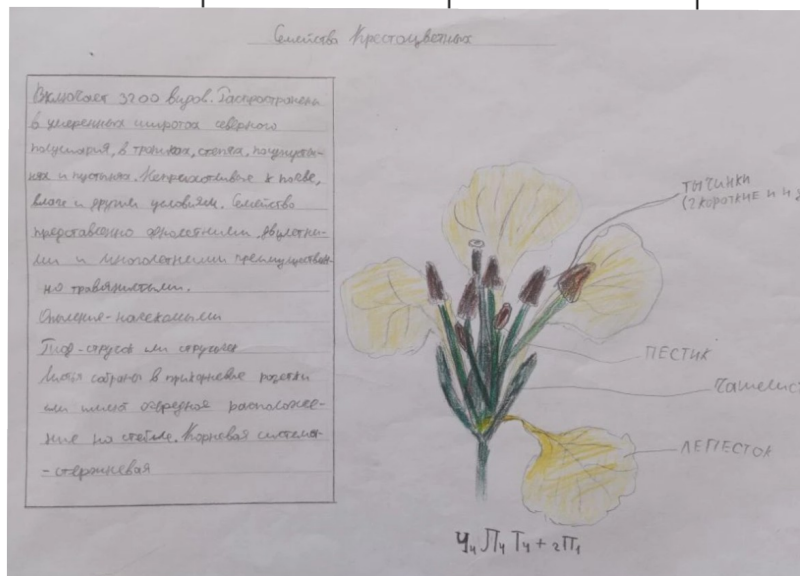 Семейство Крестоцветных
Включает 3200 видов. Распространены
в умеренных широтах северного
полушария, в тропиках, степях, полупусты-
нях и пустынях. Неприхотливые к почве,
влаге и другим условиям. Семейство
представленно однолетними, двулетни-
ми и многолетними преимуществен-
но травянистыми.
Опыление-насекомыми
Плод-стручок или стручочек
Листья собраны в прикорневые розетки
или имеют очередное расположе-
ние на стебле. Корневая система-
-стержневая
ТЫЧИНКИ
(2 КОРОТКИЕ И 4 д
ПЕСТИК
Чашелист
ЛЕПЕСТОК
Ч4 Л4 Т4+2П1